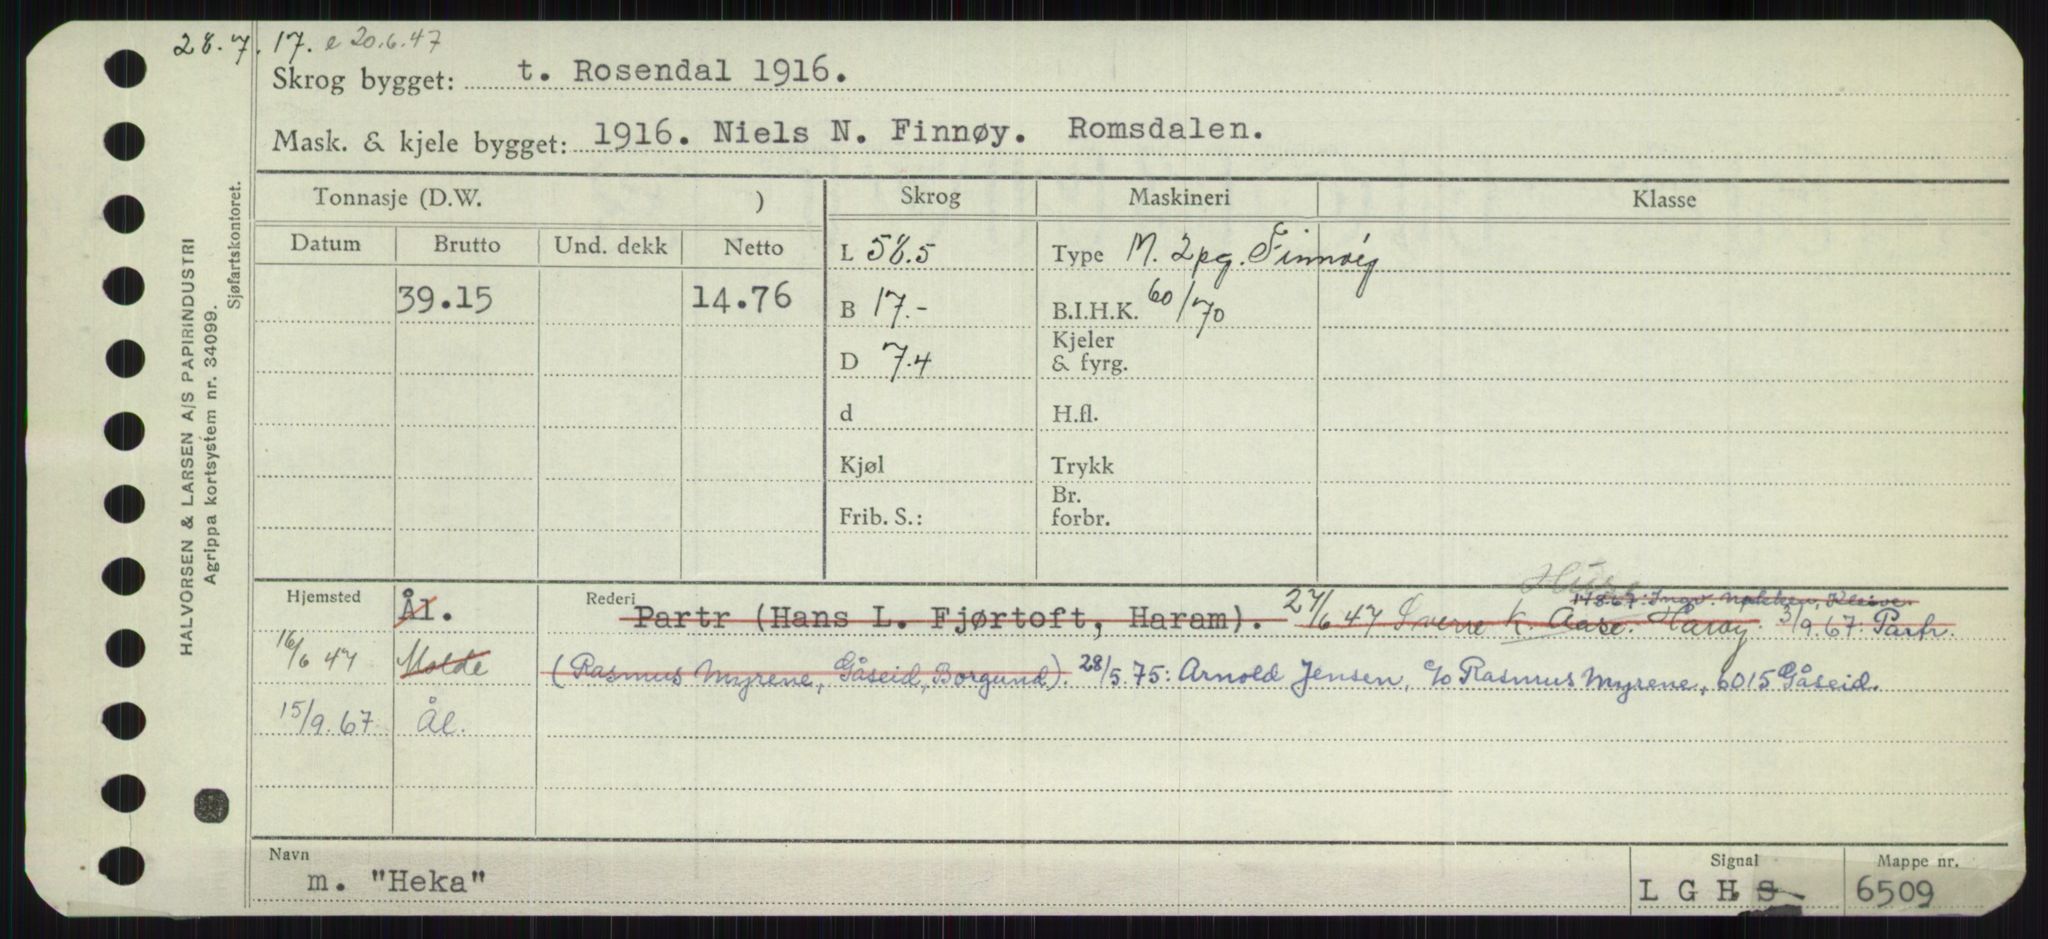 28.7.17. e 20.6.47
Skrog bygget: t. Rosendal 1916.
Mask. & kjele bygget: 1916. Niels N. Finnøy. Romsdalen.
Tonnasje (D.W. ) Skrog Maskineri Klasse
Datum Brutto Und. dekk Netto
L 58.5 Type M. 2pg. Finnøig
39.15 14.76 B 17.- B.I.H.K. 60/70
D 7.4 Kjeler & fyrg.
d H.fl.
Kjøl Trykk
Frib. S.: Br. forbr.
Hjemsted Ål. Rederi Partr (Hans L. Fjørtoft, Haram). 27/6 47 Sverre K. Aase. Harøy
Ingv. Nakken, Kleive.
3/9.67: Partr.
16/6 47 Molde (Rasmus Myrene, Gåseid, Borgund). 28/5.75: Arnold Jensen, c/o Rasmus Myrene, 6015 Gåseid.
15/9.67 Ål.
Navn m. "Heka" Signal L G H S Mappe nr. 6509
HALVORSEN & LARSEN A/S PAPIRINDUSTRI
Agrippa kortsystem nr. 34099.
Sjøfartskontoret.